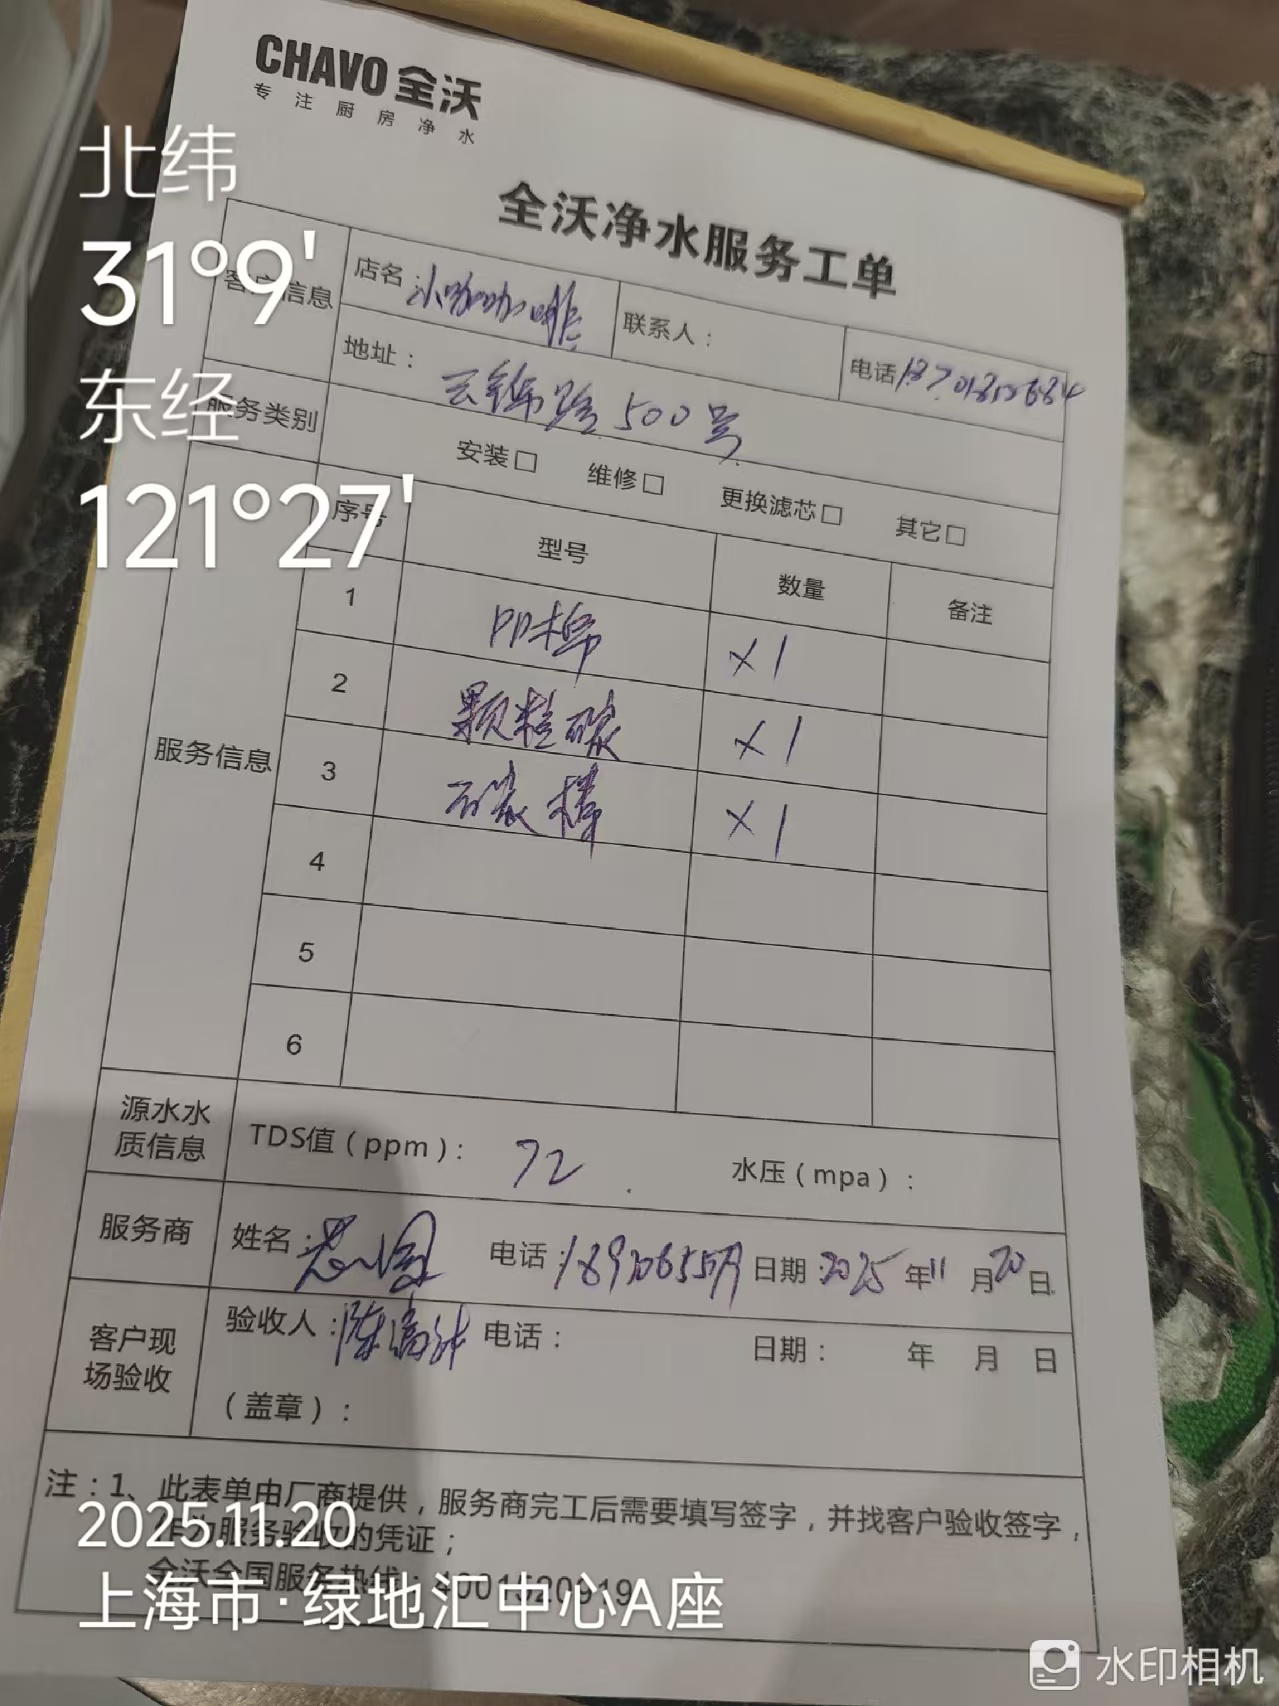 CHAVO 全沃
专注厨房净水
全沃净水服务工单
客户信息 店名：小咖咖啡 联系人： 电话
地址：云锦路500号
服务类别 安装□ 维修□ 更换滤芯□ 其它□
服务信息 序号 型号 数量 备注
1 PP棉 ×1
2 颗粒碳 ×1
3 碳棒 ×1
4
5
6
源水水质信息 TDS值（ppm）：72 水压（mpa）：
服务商 姓名： 电话： 日期：2025年11月20日
客户现场验收 验收人：陈 电话： 日期： 年 月 日
（盖章）：
注：1、此表单由厂商提供，服务商完工后需要填写签字，并找客户验收签字，
作为服务验收的凭证；
全沃全国服务热线：
北纬
31°9'
东经
121°27'
2025.11.20
上海市·绿地汇中心A座
水印相机